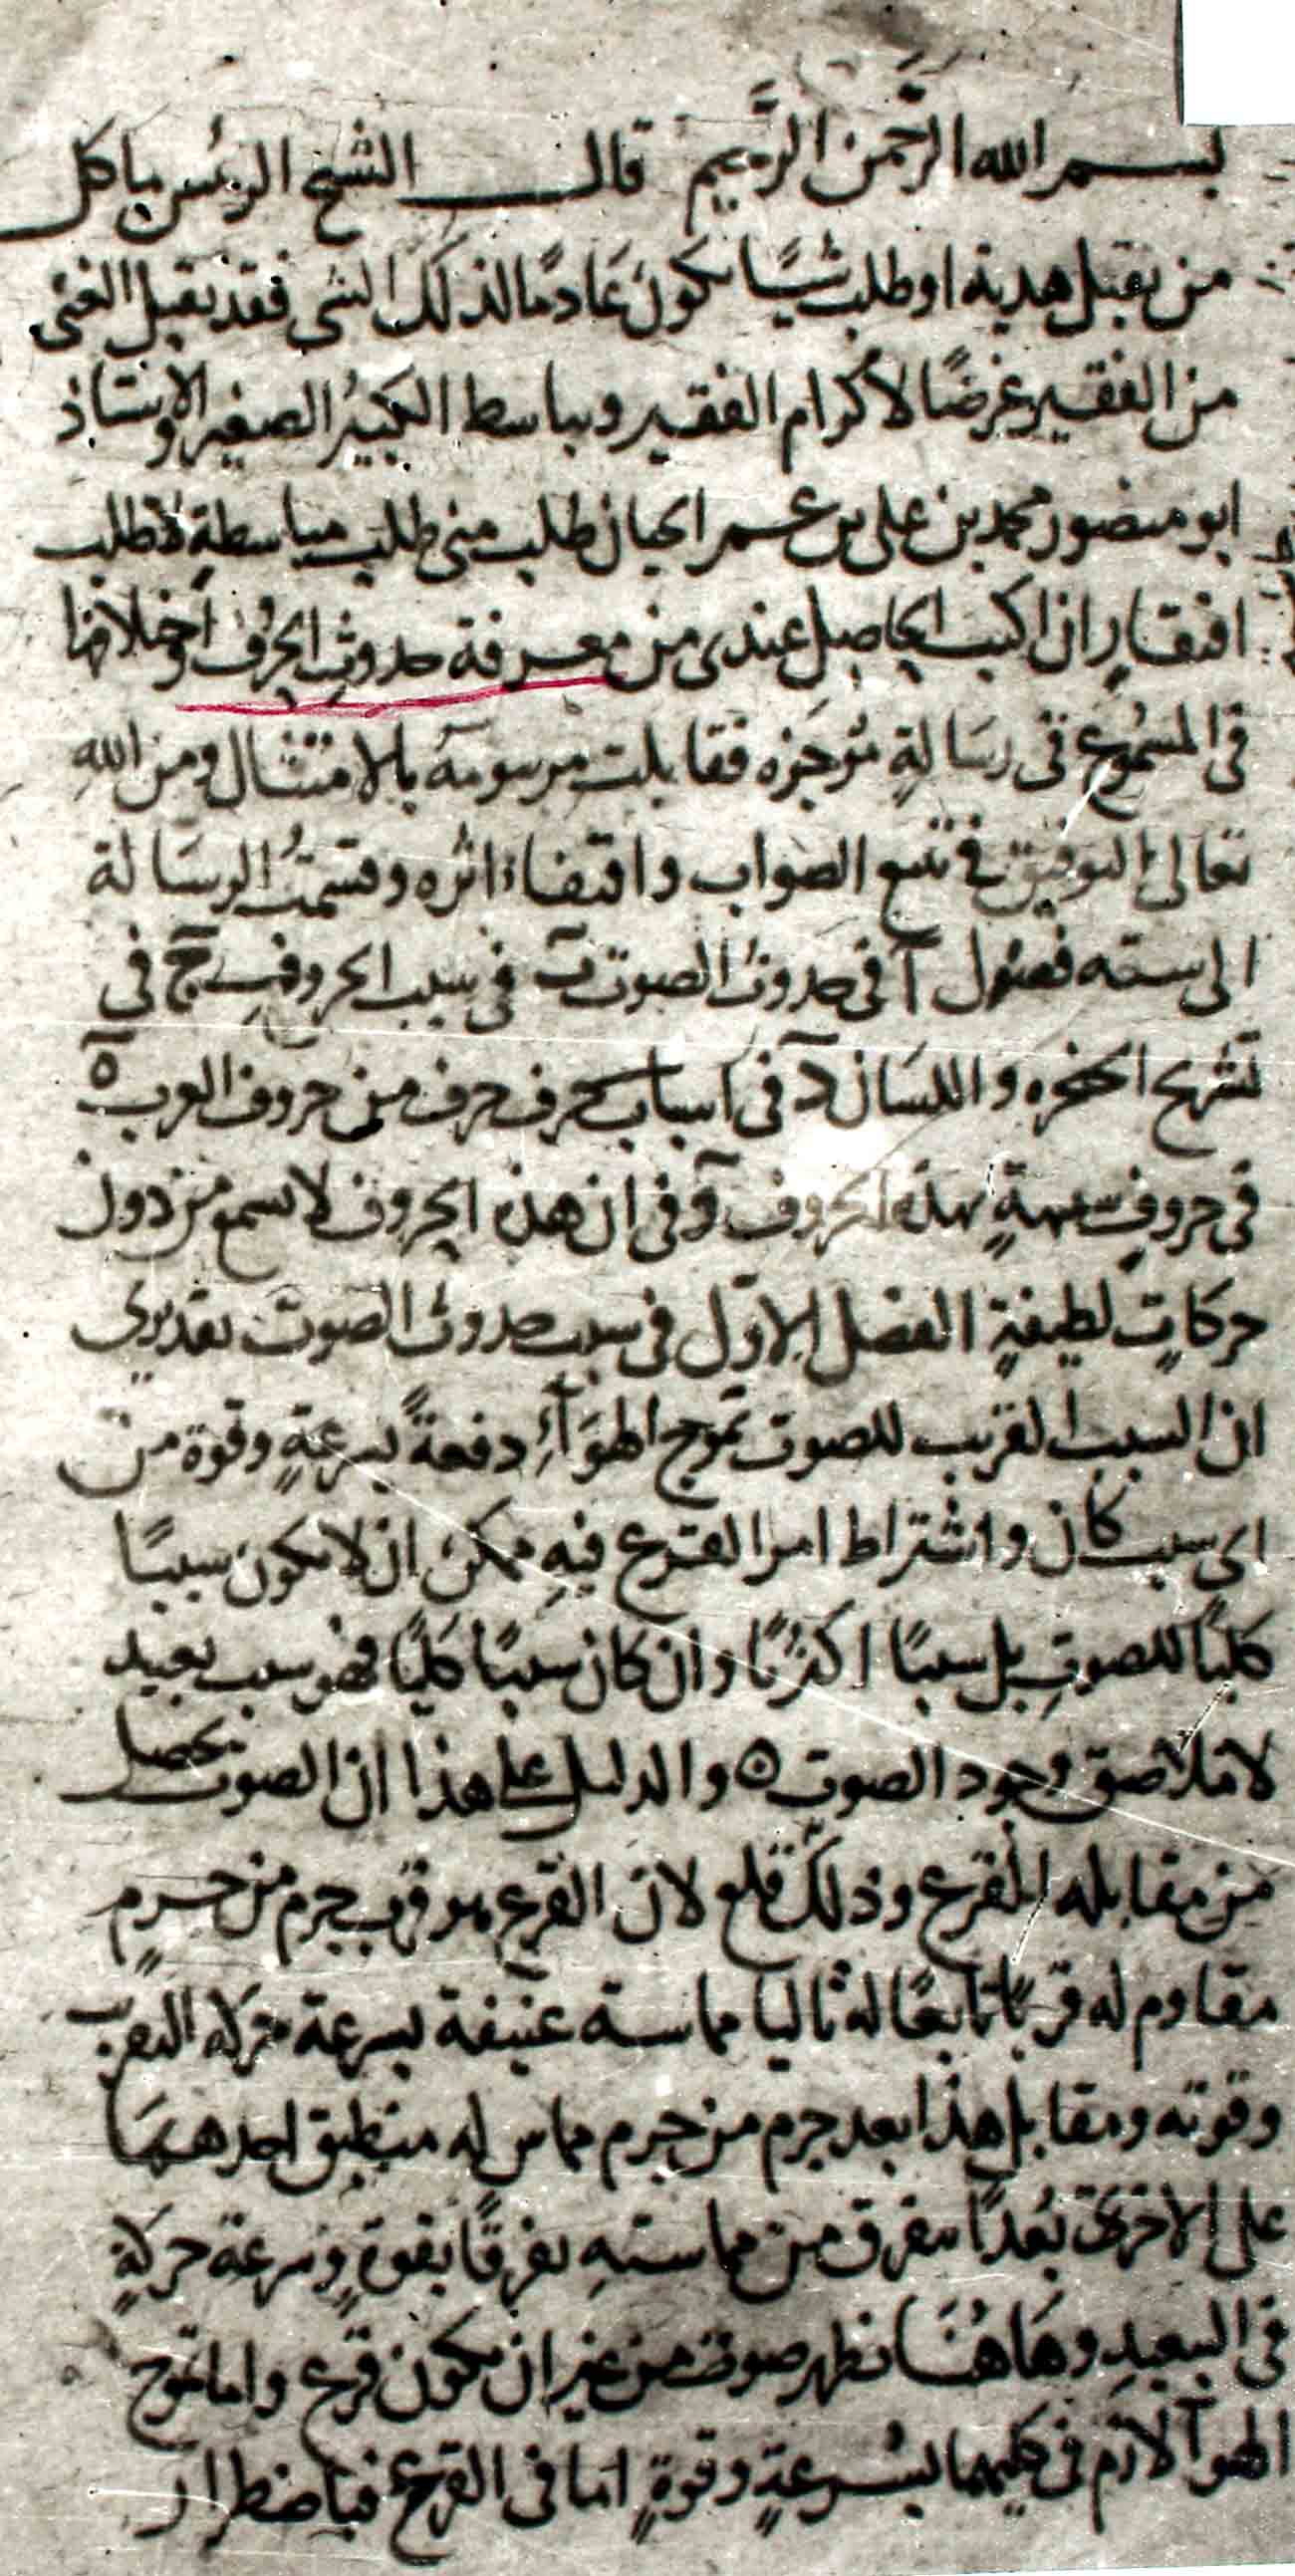 بسم الله الرحمن الرحيم قال الشيخ الرئيس ما كل
من يقبل هدية او طلب شيئًا يكون عادمًا لذلك الشى فقد يقبل الغنى
من الفقير غرضًا لاكرام الفقير ويباسط الكبيرُ الصغير والاستاذ
ابو منصور محمد بن على بن عمر الجبان طلب منى طلب مباسطةٍ لا طلب
افتقارٍ ان اكتب الحاصل عندى من معرفة حدوث الحروف واختلافها
فى المسموع فى رسالةٍ موجزه فقابلت مرسومه بالامتثال ومن اللهِ
تعالى التوفيق فى تتبع الصواب واقتفاء اثره وقسمتُ الرسالة
الى سته فصول آ فى حدوث الصوت ب فى سبب الحروف ج فى
تشريح الحنجره واللسان د فى اسباب حرف حرف من حروف العرب ه
فى حروفٍ شبيهةٍ بهذه الحروف و فى ان هذه الحروف لا تسمع من دون
حركاتٍ لطيفةٍ الفصل الاول فى سبب حدوث الصوت تقديرى
ان السبب القريب للصوت تموج الهوآءِ دفعةً بسرعةٍ وقوة من
اى سبب كان واشتراط امر القرع فيه ممكن ان لا يكون سببًا
كليًا للصوتِ بل سببًا اكثريًا وان كان سببًا كليًا فهو سبب بعيد
لا ملاصق وجود الصوت ه والدليل على هذا ان الصوت يحصل
من مقابله القرع وذلك قلع لان القرع هو قرب جرم من جرمٍ
مقاوم له قربًا تابعًا له تاليا مماسة عنيفة بسرعة حركه التقرب
وقوته ومقابل هذا بعد جرم من جرم مماس له منطبق احدهما
على الاخرى بُعدًا متفرق من مماستهِ تفرقًا بقوةٍ وسرعة حركةٍ
فى البعيدِ وهاهُنَا تظهر صوت من غير ان يكون قرع واما تموج
الهوآ لازم فى كليهما بسُرعةٍ وقوةٍ اما فى القرع فباضطرار